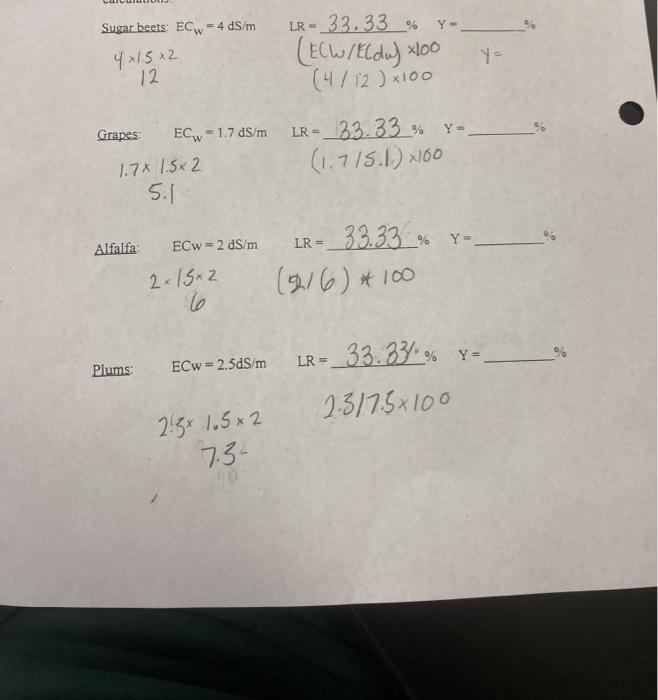 Calculations:
Sugar beets: ECw = 4 dS/m LR = 33.33 % Y = ______ %
4 x 1.5 x 2 (ECW/ECdw) x100 Y=
12 (4 / 12 ) x100
Grapes: ECw = 1.7 dS/m LR = 33.33 % Y = ______ %
1.7 x 1.5 x 2 (1.7/5.1) x100
5.1
Alfalfa: ECw = 2 dS/m LR = 33.33 % Y = ______ %
2 x 1.5 x 2 (2/6) * 100
6
Plums: ECw = 2.5dS/m LR = 33.33% % Y = ______ %
2.5 x 1.5 x 2 2.5/7.5 x 100
7.5